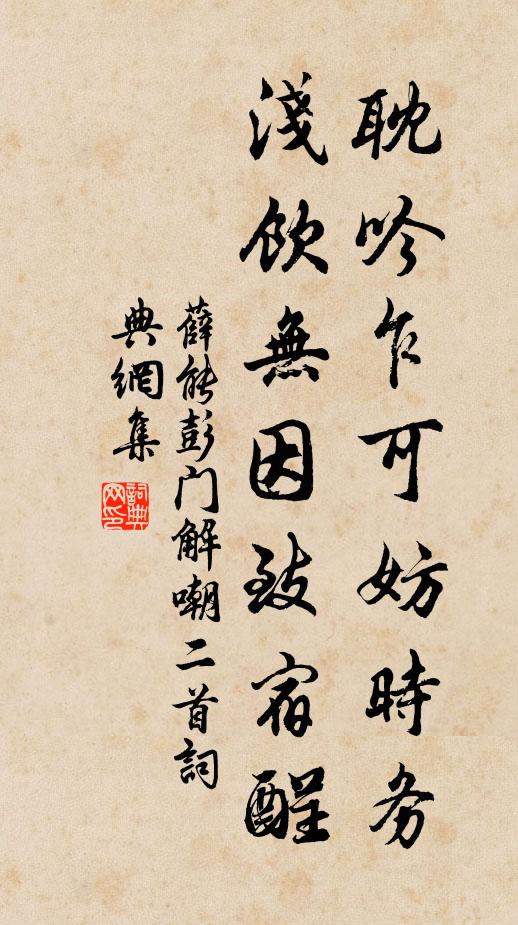 耽吟乍可妨時务
淺飲無因致宿酲
薛能彭门解嘲二首詞
典網集
詞典网印